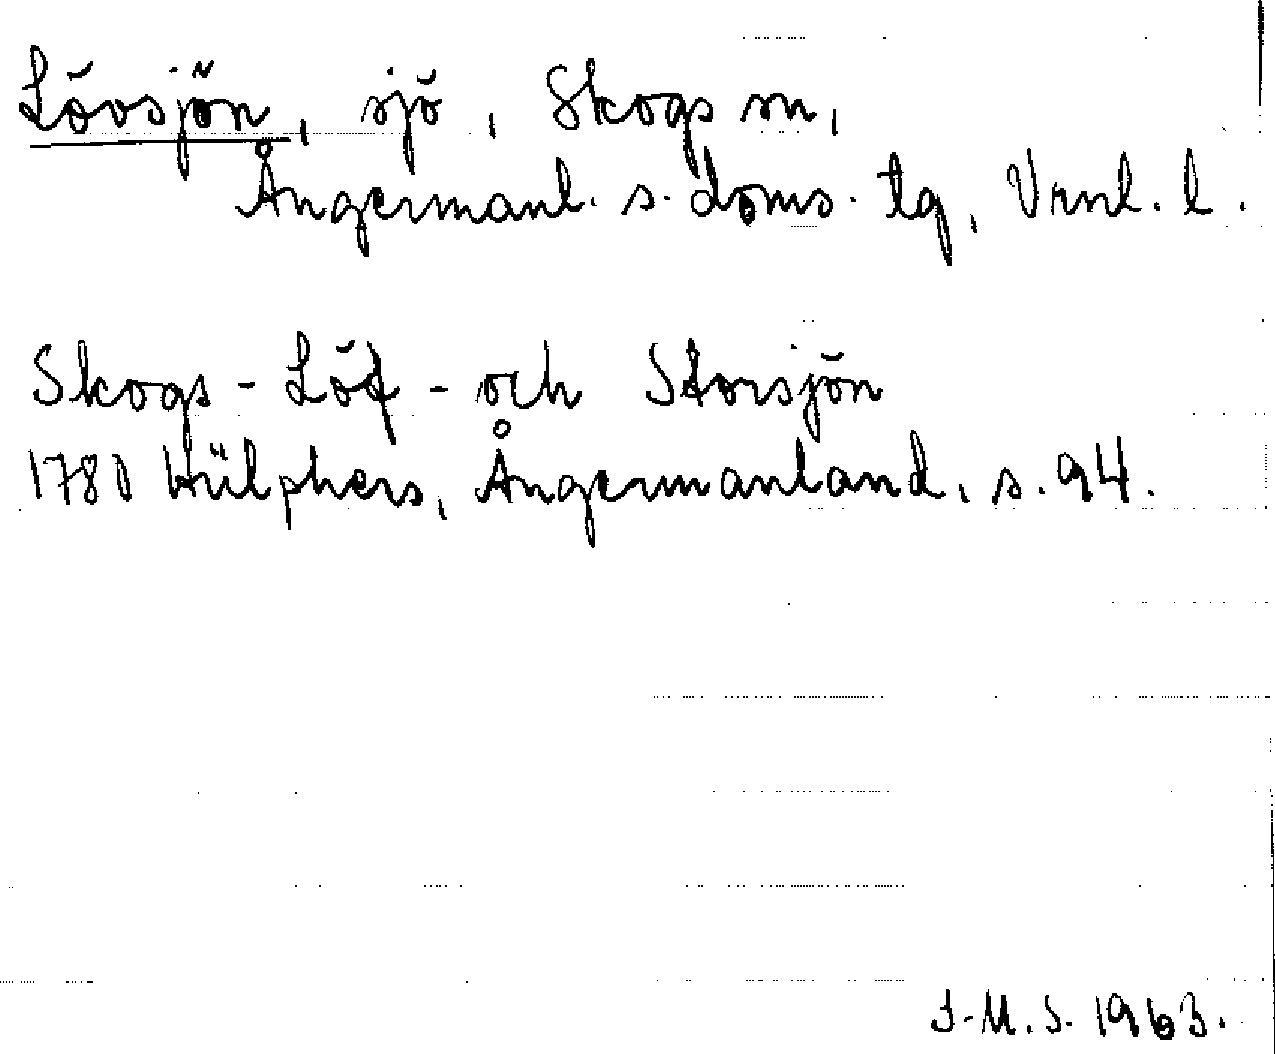 Lövsjön, sjö, Skogs sn,
Ångermanl. s. doms. tg, Vrnl. l.
Skogs - Löf - och Storsjön
1780 Hülphers, Ångermanland, s. 94.
I-M. S. 1963.